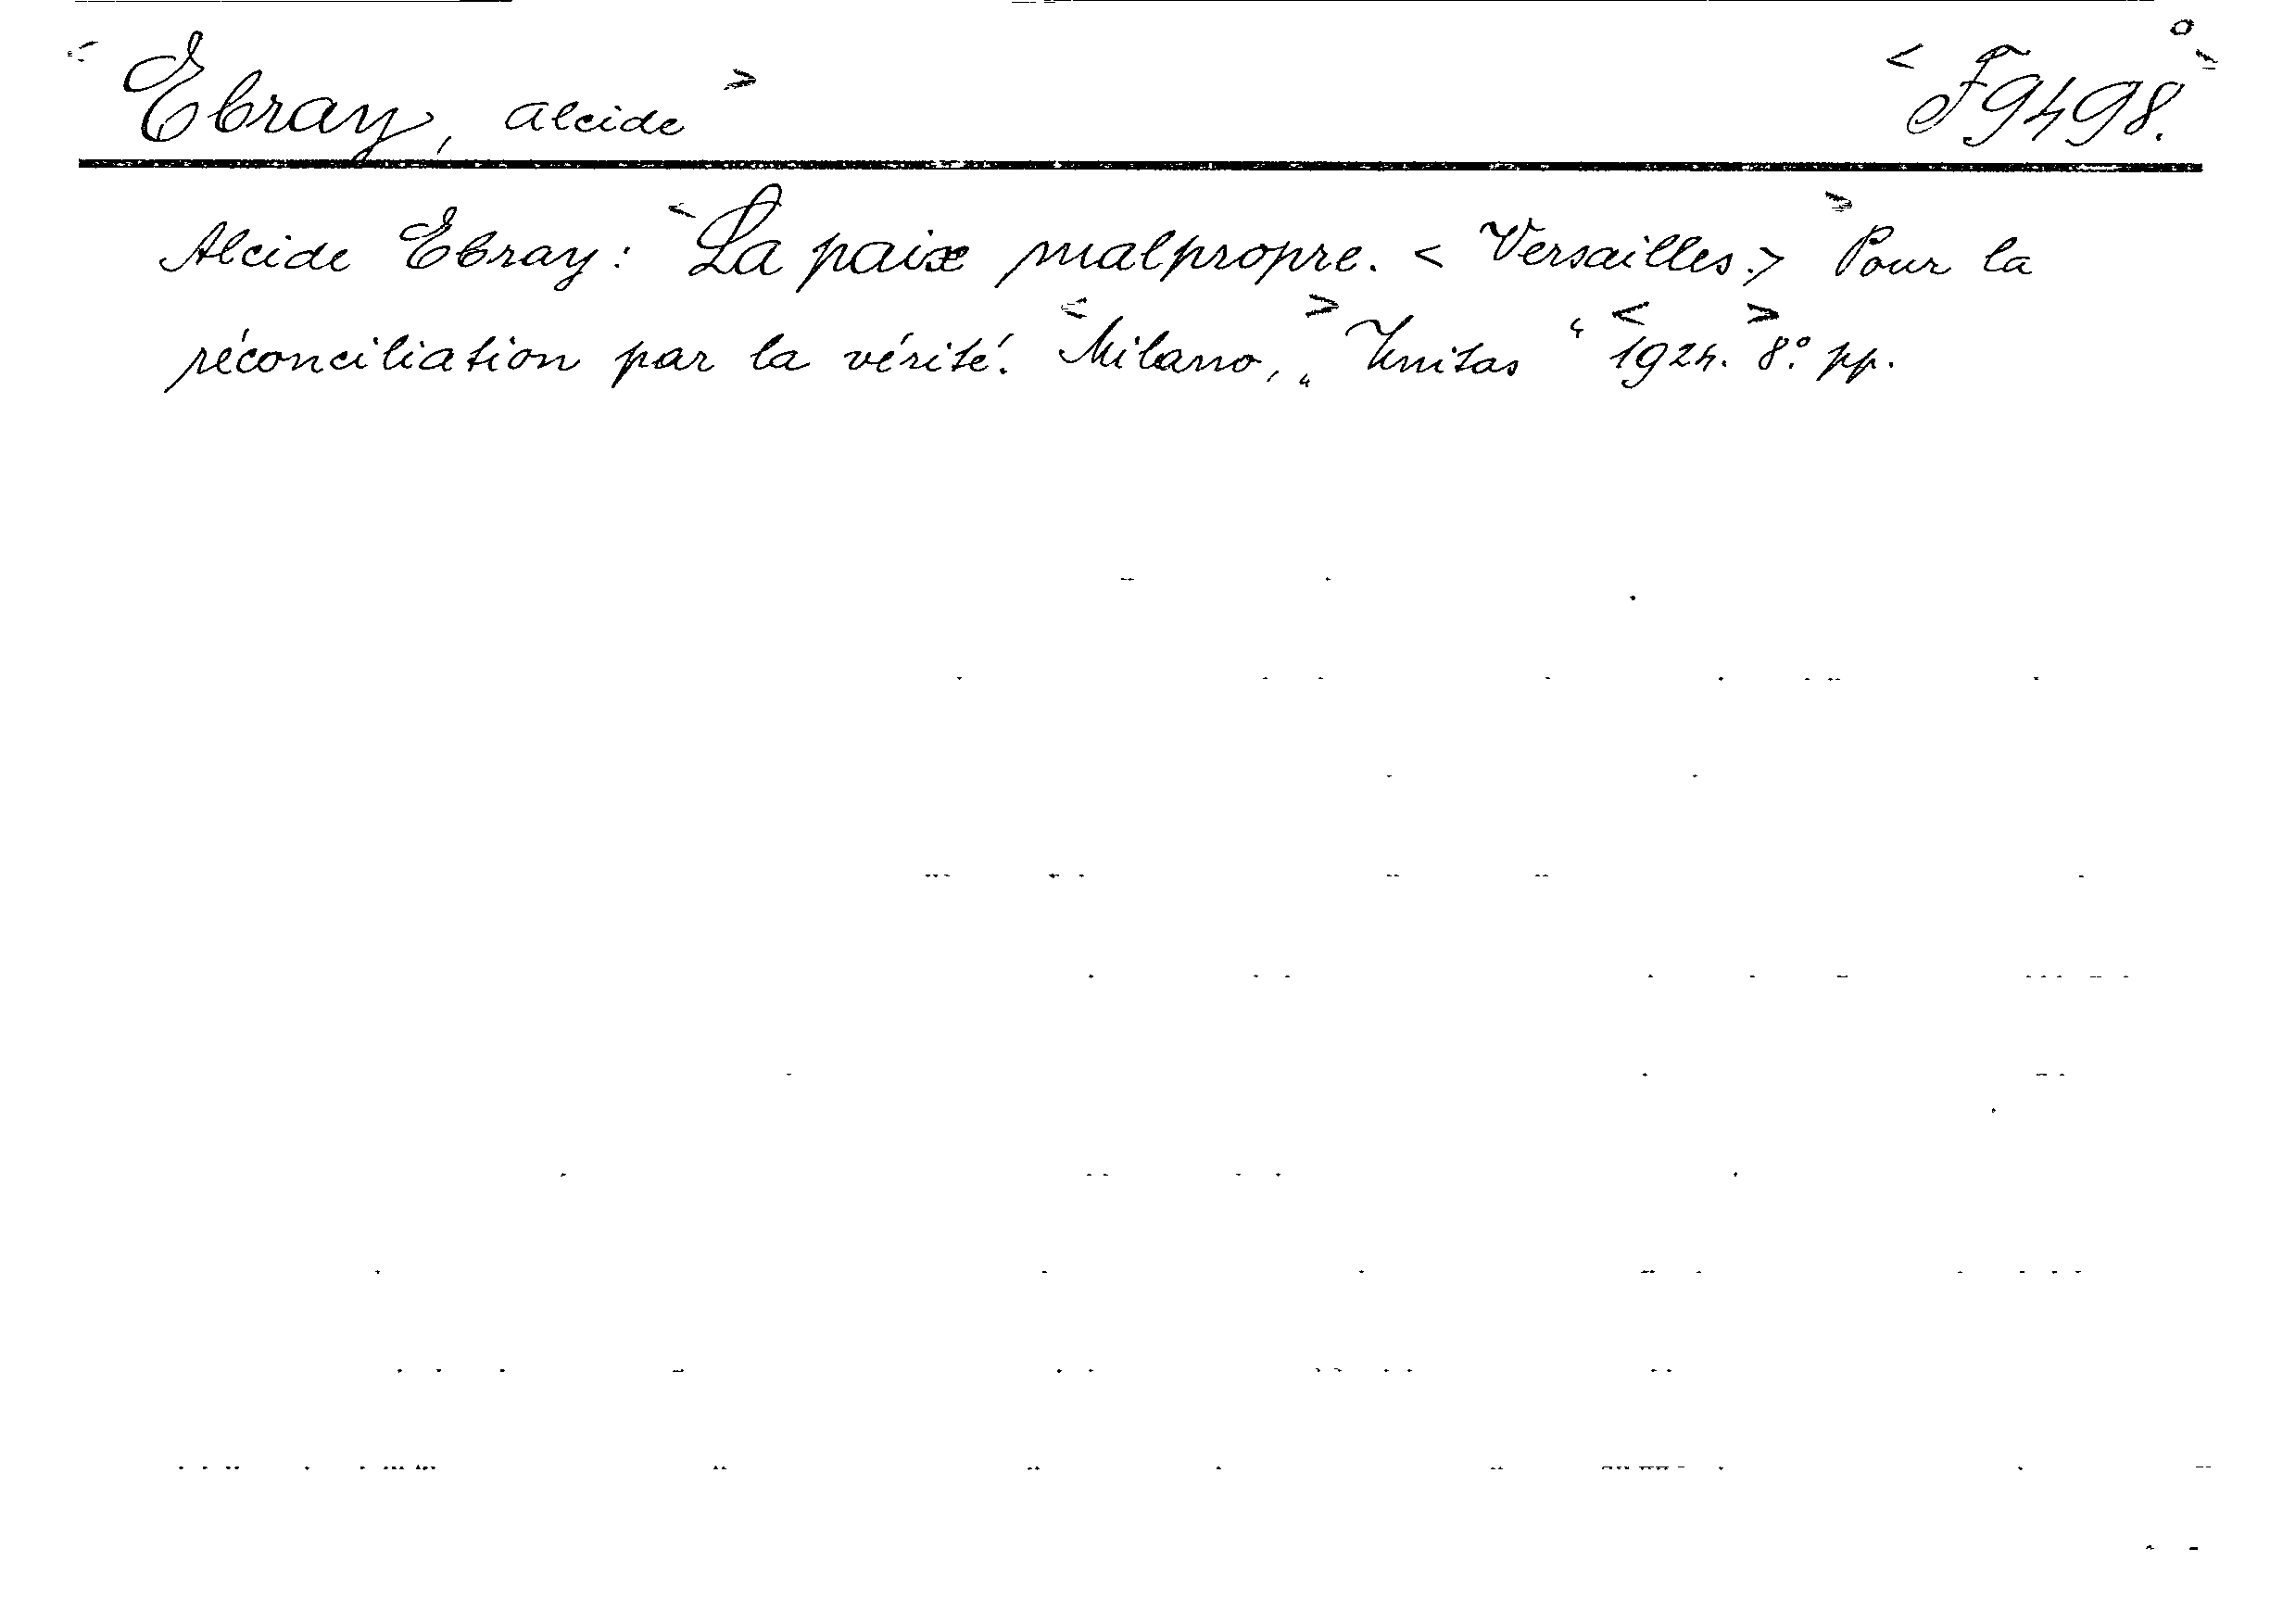 < Ebray, Alcide > < F9498.° >
Alcide Ebray: < La paix malpropre. < Versailles.> > Pour la
réconciliation par la vérité. < Milano, > „Unitas“ < 1924. > 8.° pp.